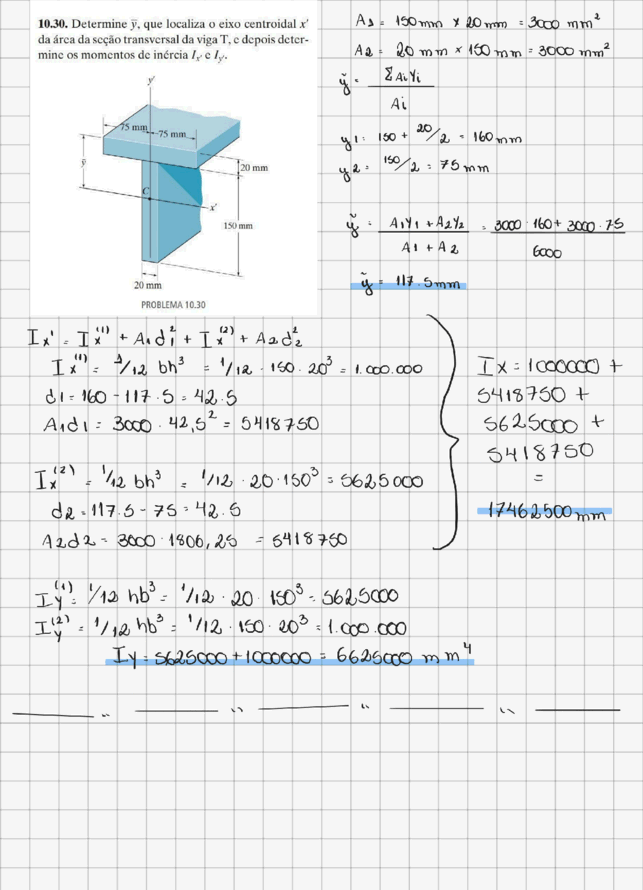 10.30. Determine ȳ, que localiza o eixo centroidal x'
da área da secção transversal da viga T, e depois deter-
mine os momentos de inércia Ix' e Iy'.
y'
75 mm
75 mm
ȳ
20 mm
C
x'
150 mm
20 mm
PROBLEMA 10.30
A1 = 150 mm × 20 mm = 3000 mm²
A2 = 20 mm × 150 mm = 3000 mm²
ỹ = ΣAiYi / Ai
y1 = 150 + 20/2 = 160 mm
y2 = 150/2 = 75 mm
ỹ = A1Y1 + A2Y2 / A1 + A2 = 3000 · 160 + 3000 · 75 / 6000
ỹ = 117.5 mm
Ix' = Ix⁽¹⁾ + A1d1² + Ix⁽²⁾ + A2d2²
Ix⁽¹⁾ = 1/12 bh³ = 1/12 · 150 · 20³ = 1.000.000
d1 = 160 - 117.5 = 42.5
A1d1 = 3000 · 42,5² = 5418750
Ix⁽²⁾ = 1/12 bh³ = 1/12 · 20 · 150³ = 5625000
d2 = 117.5 - 75 = 42.5
A2d2 = 3000 · 1806,25 = 5418750
Ix = 1000000 +
5418750 +
5625000 +
5418750
=
17462500 mm
Iy⁽¹⁾ = 1/12 hb³ = 1/12 · 20 · 150³ = 5625000
Iy⁽²⁾ = 1/12 hb³ = 1/12 · 150 · 20³ = 1.000.000
Iy = 5625000 + 1000000 = 6625000 mm⁴